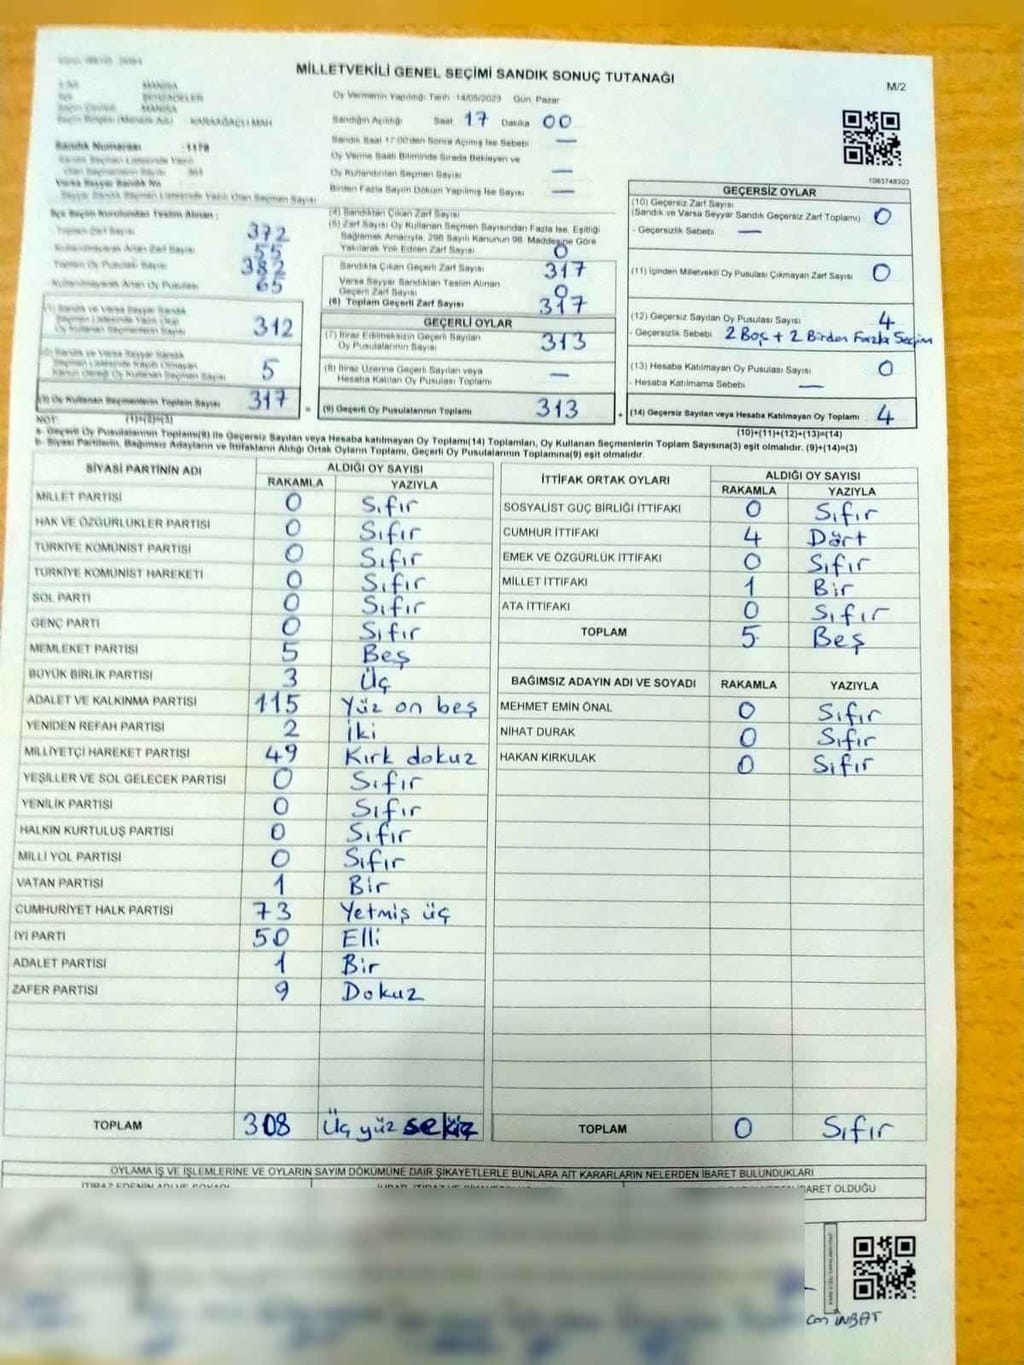 MİLLETVEKİLİ GENEL SEÇİMİ SANDIK SONUÇ TUTANAĞI
M/2
MANİSA
ŞEHZADELER
MANİSA
KARAAĞAÇLI MAH
Oy Vermenin Yapıldığı Tarih 14/05/2023 Gün Pazar
Sandığın Açıldığı Saat 17 Dakika 00
Sandık Saat 17:00'den Sonra Açılmış İse Sebebi —
Oy Verme Saati Bitiminde Sırada Bekleyen ve
Oy Kullandırılan Seçmen Sayısı —
Birden Fazla Sayım Döküm Yapılmış İse Sayısı —
Sandık Numarası 1178
Varsa Seyyar Sandık No
İlçe Seçim Kurulundan Teslim Alınan ;
Toplam Zarf Sayısı 372
Kullanılmayarak Artan Zarf Sayısı 55
Toplam Oy Pusulası Sayısı 382
Kullanılmayarak Artan Oy Pusulası 65
(1) Sandık ve Varsa Seyyar Sandık
Seçmen Listesinde Yazılı Olup
Oy Kullanan Seçmenlerin Sayısı 312
(2) Sandık ve Varsa Seyyar Sandık
Seçmen Listesinde Kaydı Olmayan
Kanun Gereği Oy Kullanan Seçmen Sayısı 5
(3) Oy Kullanan Seçmenlerin Toplam Sayısı 317
(4) Sandıktan Çıkan Zarf Sayısı
(5) Zarf Sayısı Oy Kullanan Seçmen Sayısından Fazla İse, Eşitliği
Bağlamak Amacıyla, 298 Sayılı Kanunun 98. Maddesine Göre
Yakılarak Yok Edilen Zarf Sayısı 0
Sandıkta Çıkan Geçerli Zarf Sayısı 317
Varsa Seyyar Sandıktan Teslim Alınan
Geçerli Zarf Sayısı 0
(6) Toplam Geçerli Zarf Sayısı 317
GEÇERLİ OYLAR
(7) İtiraz Edilmeksizin Geçerli Sayılan
Oy Pusulalarının Sayısı 313
(8) İtiraz Üzerine Geçerli Sayılan veya
Hesaba Katılan Oy Pusulası Toplamı —
= (9) Geçerli Oy Pusulalarının Toplamı 313
1083748303
GEÇERSİZ OYLAR
(10) Geçersiz Zarf Sayısı
(Sandık ve Varsa Seyyar Sandık Geçersiz Zarf Toplamı) 0
- Geçersizlik Sebebi —
(11) İçinden Milletvekili Oy Pusulası Çıkmayan Zarf Sayısı 0
(12) Geçersiz Sayılan Oy Pusulası Sayısı 4
- Geçersizlik Sebebi 2 Boş + 2 Birden Fazla Seçim
(13) Hesaba Katılmayan Oy Pusulası Sayısı 0
- Hesaba Katılmama Sebebi —
+ (14) Geçersiz Sayılan veya Hesaba Katılmayan Oy Toplamı 4
NOT: (1)+(2)=(3)
(10)+(11)+(12)+(13)=(14)
a- Geçerli Oy Pusulalarının Toplamı(9) ile Geçersiz Sayılan veya Hesaba katılmayan Oy Toplamı(14) Toplamları, Oy Kullanan Seçmenlerin Toplam Sayısına(3) eşit olmalıdır. (9)+(14)=(3)
b- Siyasi Partilerin, Bağımsız Adayların ve İttifakların Aldığı Ortak Oyların Toplamı, Geçerli Oy Pusulalarının Toplamına(9) eşit olmalıdır.
SİYASİ PARTİNİN ADI
ALDIĞI OY SAYISI
RAKAMLA YAZIYLA
MİLLET PARTİSİ 0 Sıfır
HAK VE ÖZGÜRLÜKLER PARTİSİ 0 Sıfır
TÜRKİYE KOMÜNİST PARTİSİ 0 Sıfır
TÜRKİYE KOMÜNİST HAREKETİ 0 Sıfır
SOL PARTİ 0 Sıfır
GENÇ PARTİ 0 Sıfır
MEMLEKET PARTİSİ 5 Beş
BÜYÜK BİRLİK PARTİSİ 3 Üç
ADALET VE KALKINMA PARTİSİ 115 Yüz on beş
YENİDEN REFAH PARTİSİ 2 İki
MİLLİYETÇİ HAREKET PARTİSİ 49 Kırk dokuz
YEŞİLLER VE SOL GELECEK PARTİSİ 0 Sıfır
YENİLİK PARTİSİ 0 Sıfır
HALKIN KURTULUŞ PARTİSİ 0 Sıfır
MİLLİ YOL PARTİSİ 0 Sıfır
VATAN PARTİSİ 1 Bir
CUMHURİYET HALK PARTİSİ 73 Yetmiş üç
İYİ PARTİ 50 Elli
ADALET PARTİSİ 1 Bir
ZAFER PARTİSİ 9 Dokuz
TOPLAM 308 Üç yüz sekiz
İTTİFAK ORTAK OYLARI
ALDIĞI OY SAYISI
RAKAMLA YAZIYLA
SOSYALİST GÜÇ BİRLİĞİ İTTİFAKI 0 Sıfır
CUMHUR İTTİFAKI 4 Dört
EMEK VE ÖZGÜRLÜK İTTİFAKI 0 Sıfır
MİLLET İTTİFAKI 1 Bir
ATA İTTİFAKI 0 Sıfır
TOPLAM 5 Beş
BAĞIMSIZ ADAYIN ADI VE SOYADI RAKAMLA YAZIYLA
MEHMET EMİN ÖNAL 0 Sıfır
NİHAT DURAK 0 Sıfır
HAKAN KIRKULAK 0 Sıfır
TOPLAM 0 Sıfır
OYLAMA İŞ VE İŞLEMLERİNE VE OYLARIN SAYIM DÖKÜMÜNE DAİR ŞİKAYETLERLE BUNLARA AİT KARARLARIN NELERDEN İBARET BULUNDUKLARI
İTİRAZ EDENİN ADI VE SOYADI
İBARET OLDUĞU
Can İNBAT